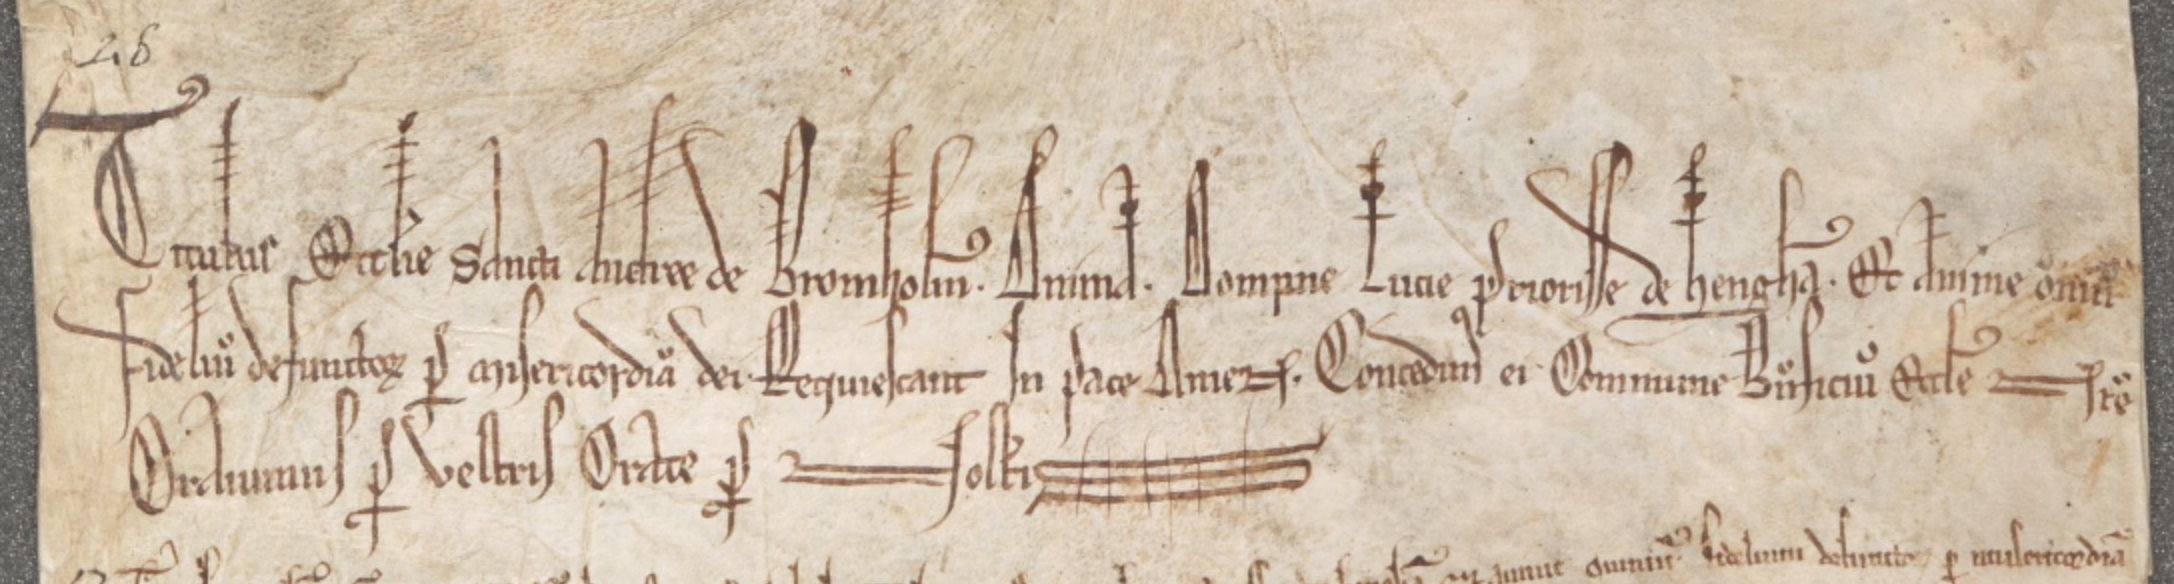 28
Titulus Ecclie Sancti Andree de Bromholm. Anima. Dompne Lucie priorisse de hengham. Et anime omium
fideliū defunctoꝝ ꝑ misericordiā dei Requiescant In pace Amen. Concedimꝰ ei Commune Bn̄ficiū Eccle nr̄e
Orauimus ꝓ vestris Orate ꝓ nostris
anime omnium fidelium defunctoꝝ ꝑ misericordiā